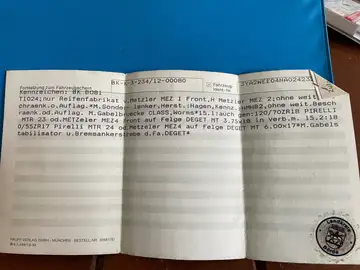 BK-K-3-234/12-00080
Fahrzeug-
Ident.-Nr.
JYA2WEE04NA024232
Formelzug zum Fahrzeugschein
Kennzeichen: BK DOB1
T1024;nur Reifenfabrikat v.Metzler MEZ 1 Front,H Metzler MEZ 2;ohne weit.
chraenk.o.Auflag.*M.Sonder- lenker,Herst.:Hagen,Kennz.:HMHB2,ohne weit.Besch
raenk.od.Auflag. M.Gabelbruecke CLASS,Worms*15.1:auch gen:120/70ZR18 PIRELLI
MTR 23 od.METZeler MEZ4 front auf Felge DEGET MT 3.75x18 in Verb.m. 15.2:18
0/55ZR17 Pirelli MTR 24 od.Metzeler MEZ4 auf felge DEGET MT 6.00x17*M.Gabels
tabilisator u.Bremsankerstrebe d.Fa.DEGET*